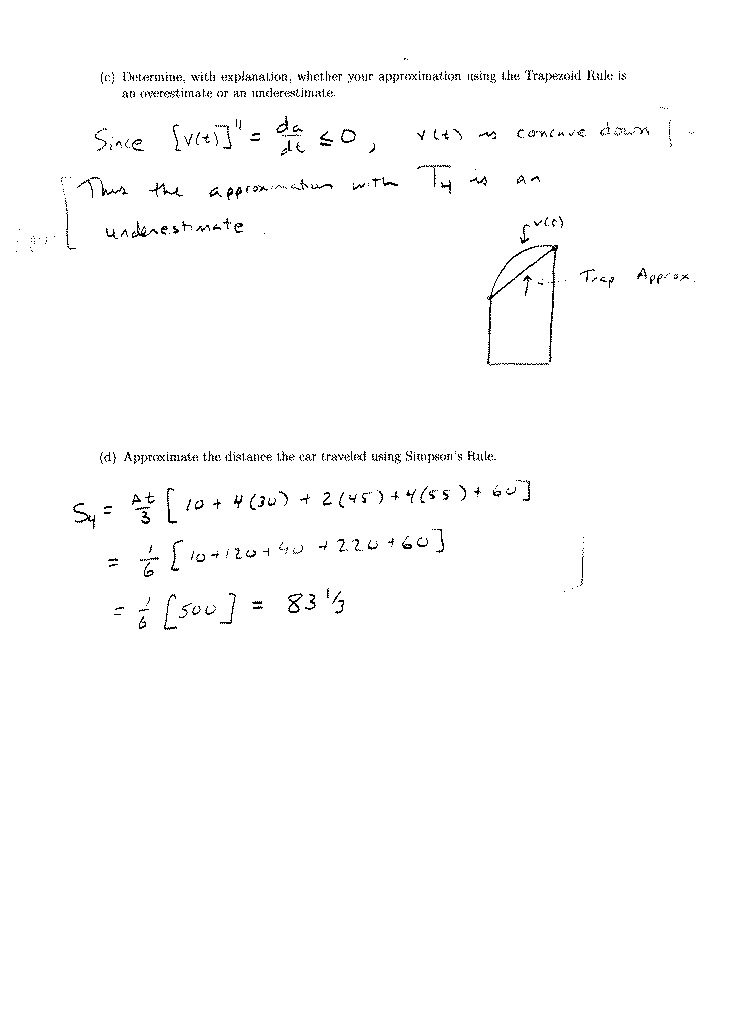 (c) Determine, with explanation, whether your approximation using the Trapezoid Rule is
an overestimate or an underestimate.
Since [v(t)]" = da/dt ≤ 0, v(t) is concave down
Thus the approximation with T4 is an
underestimate.
v(t)
Trap Approx.
(d) Approximate the distance the car traveled using Simpson's Rule.
S4 = Δt/3 [10 + 4(30) + 2(45) + 4(55) + 60]
= 1/6 [10+120+90+220+60]
= 1/6 [500] = 83 1/3